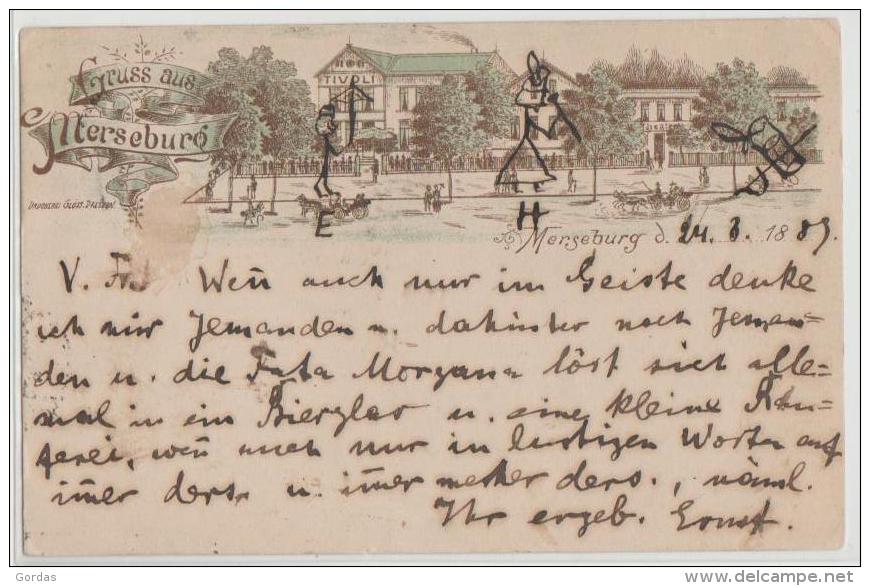 Gruss aus
Merseburg
TIVOLI
DRUCKEREI GLÖSS, DRESDEN
E
H
Merseburg d. 24. 8. 1889.
V. Fr. Weñ auch nur im Geiste denke
ich mir Jemanden u. dahinter noch Jeman=
den u. die Fata Morgana löst sich alle=
mal in ein Bierglas u. eine kleine Rau=
ferei, weñ auch nur in lustigen Worten auf
im̄er ders. u. im̄er ders., näml.
Ihr ergeb. Ernst.
Gordas
www.delcampe.net